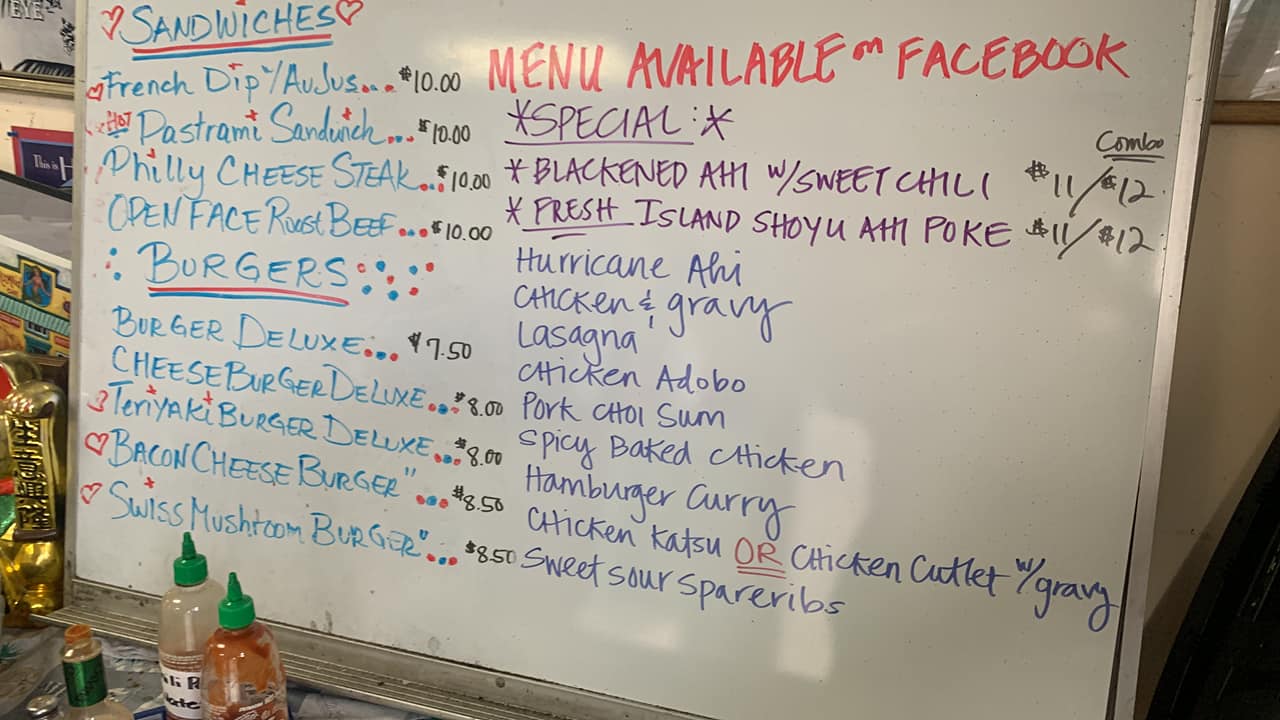 EYE
This is H
SANDWICHES
French Dip w/AuJus... $10.00
HOT Pastrami Sandwich... $10.00
Philly CHEESE STEAK... $10.00
OPEN FACE Roast BEEF... $10.00
BURGERS
BURGER DELUXE... $7.50
CHEESEBURGER DELUXE... $8.00
Teriyaki BURGER DELUXE... $8.00
BACON CHEESE BURGER" ... $8.50
Swiss Mushroom BURGER" ... $8.50
MENU AVAILABLE on FACEBOOK
*SPECIAL:*
Combo
*BLACKENED AHI w/SWEET CHILI $11/$12
*FRESH ISLAND SHOYU AHI POKE $11/$12
Hurricane Ahi
CHICKEN & gravy
Lasagna
CHICKEN Adobo
Pork CHOI Sum
Spicy Baked CHICKEN
Hamburger Curry
CHICKEN Katsu OR CHICKEN Cutlet w/gravy
Sweet sour spareribs
生意興隆